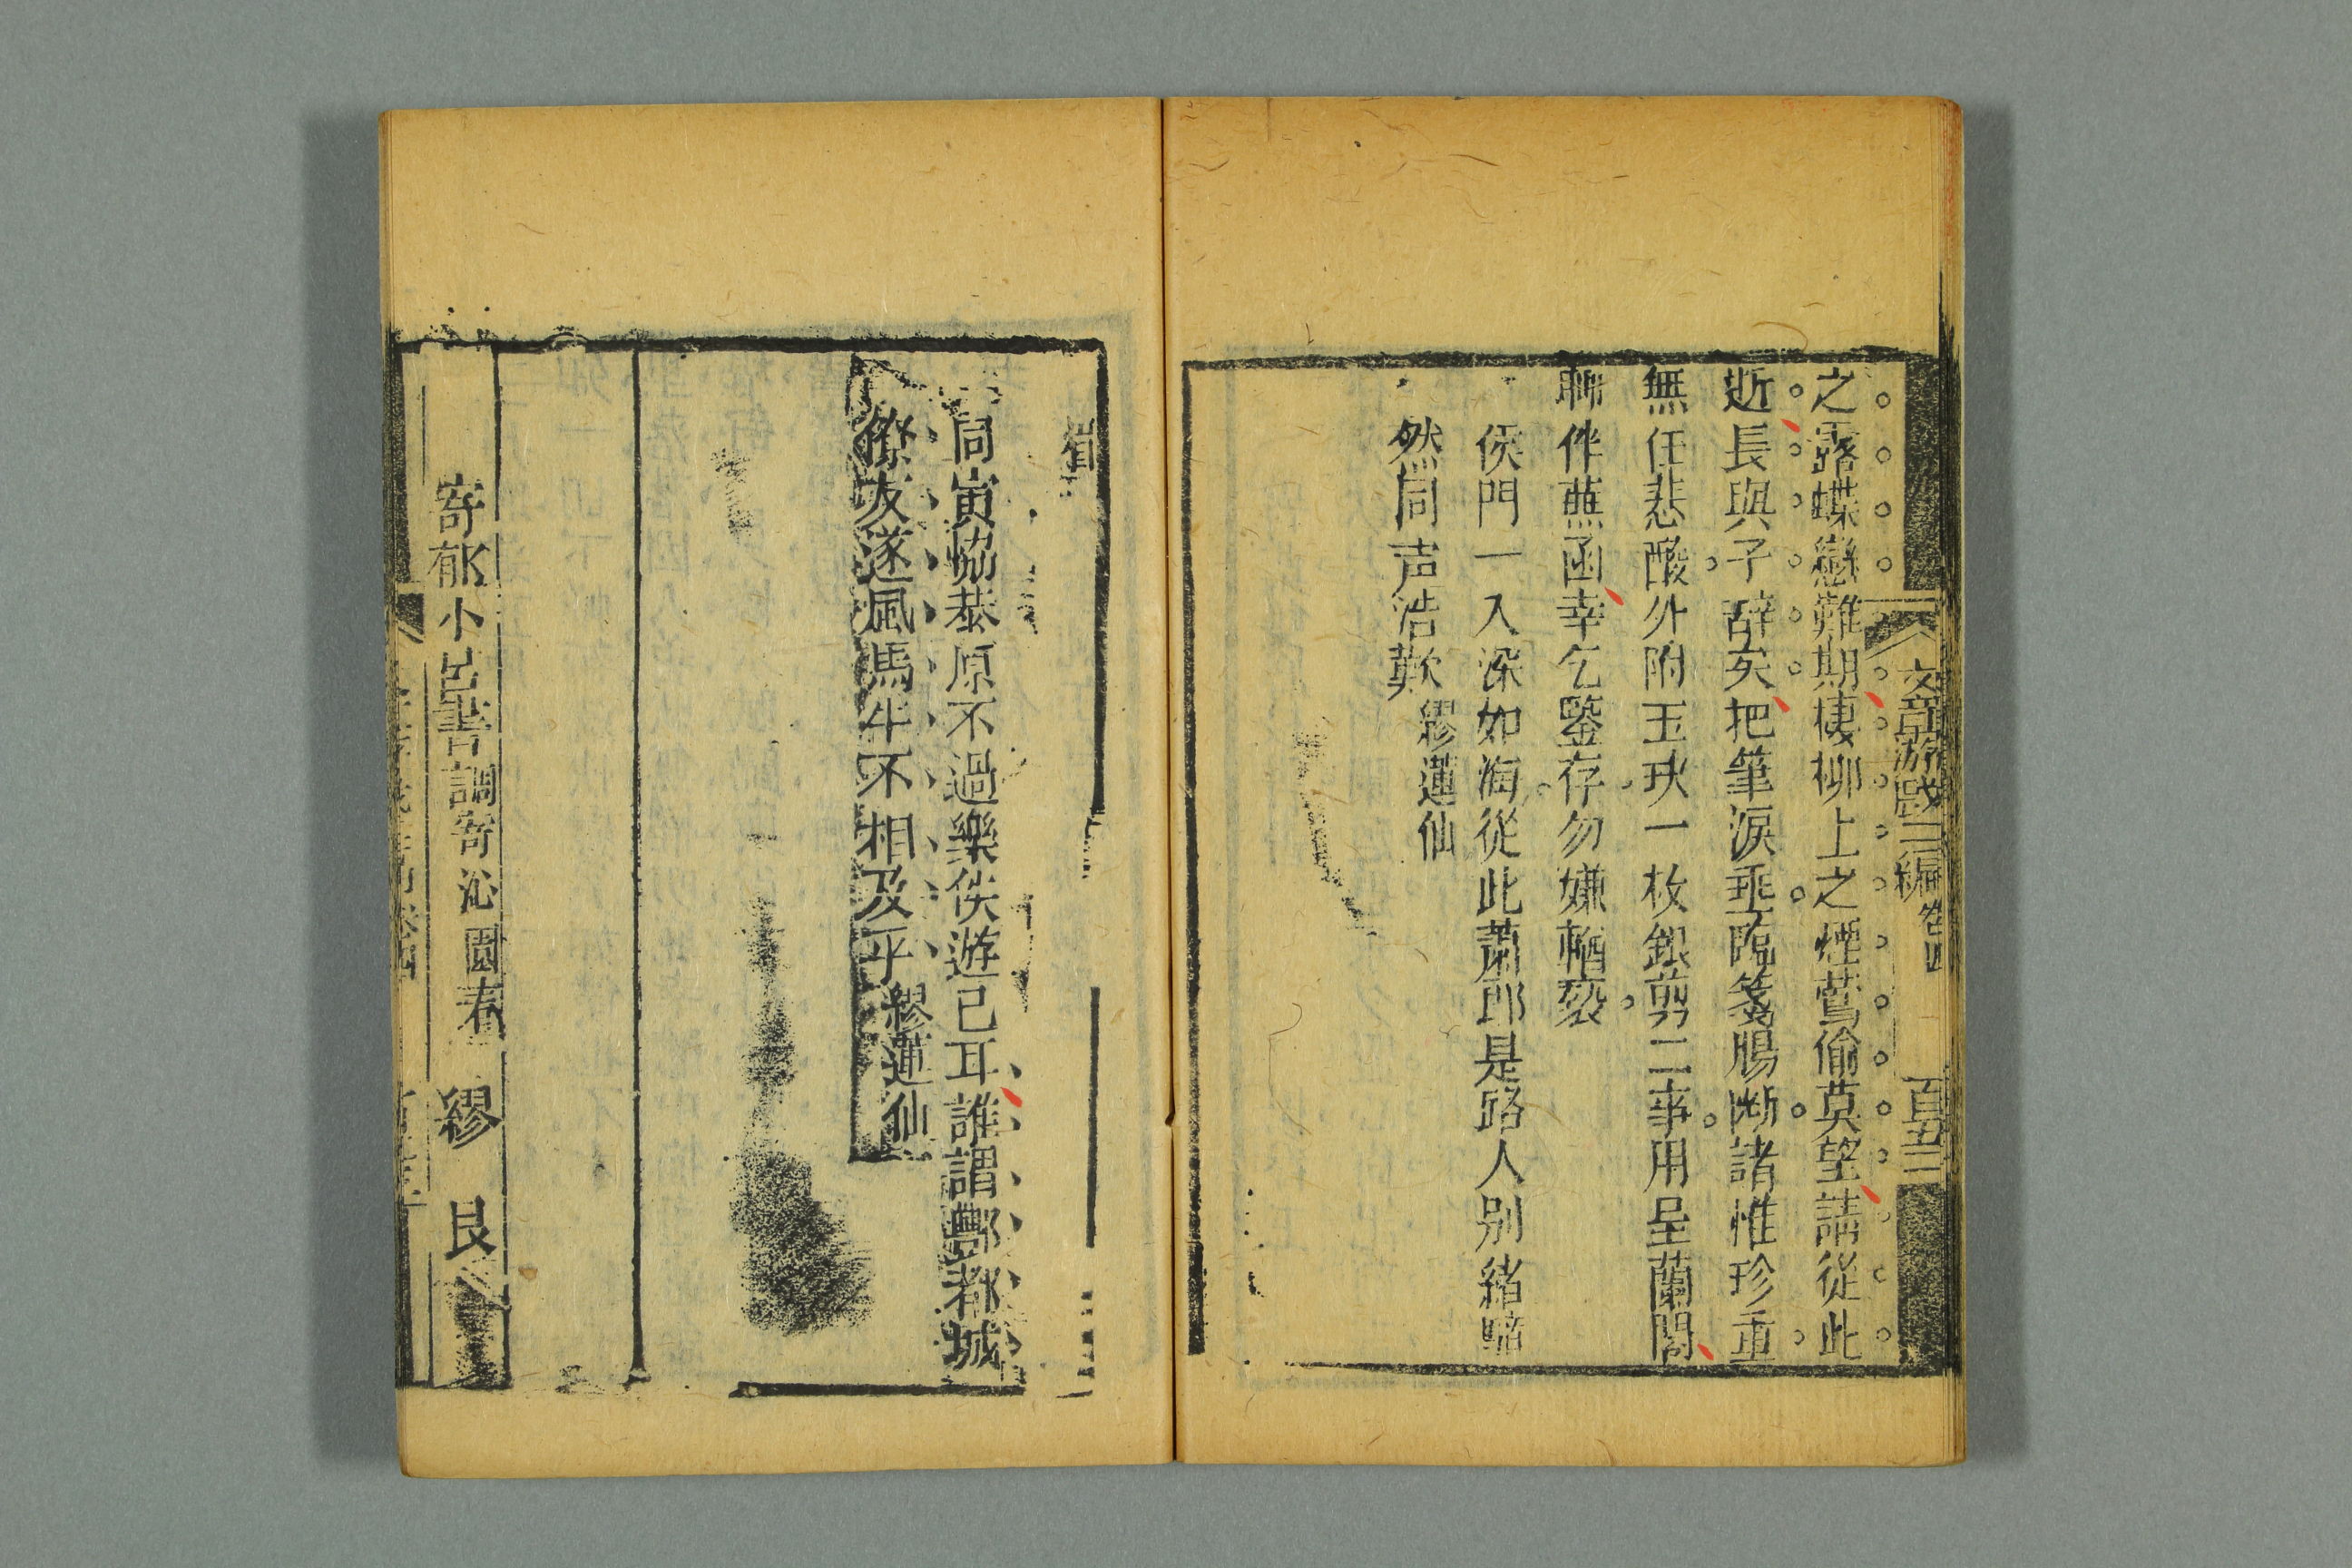 文章游戲三編 卷四
之露蝶戀難期棲柳上之煙鶯偷莫望請從此
逝長與子辭矣把筆淚垂臨箋腸斷諸惟珍重
無任悲酸外附玉玦一枚銀剪二事用呈蘭閣
聊伴蕪函幸乞鑒存勿嫌輶褻
侯門一入深如海從此蕭郎是路人別緒黯
然同声浩歎 繆蓮仙
同寅協恭原不過樂佚遊已耳誰謂酆都城
僚友遂風馬牛不相及乎 繆蓮仙
寄郁小呂書調寄沁園春 繆 艮